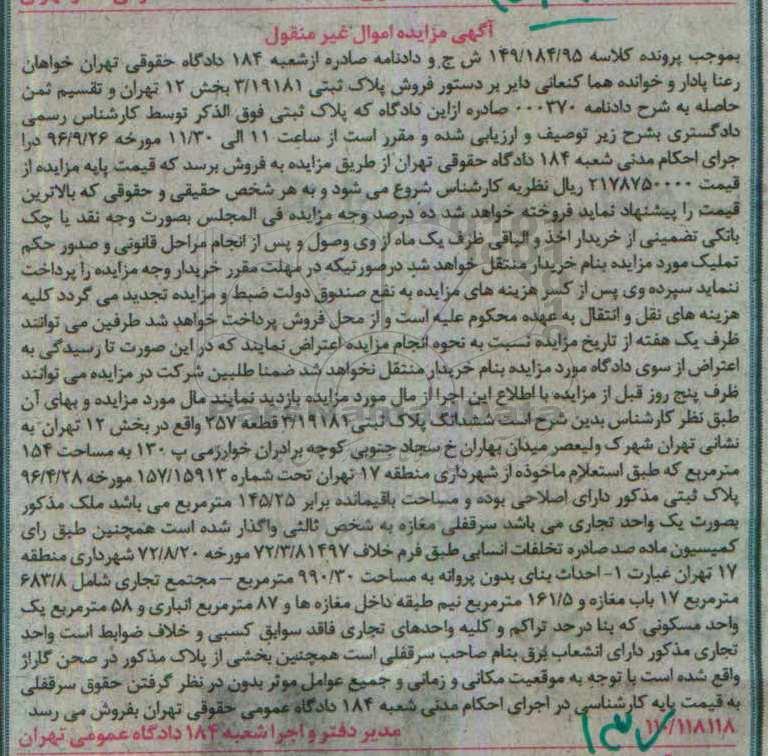 آگهی مزایده اموال غیر منقول
بموجب پرونده کلاسه ۱۴۹/۱۸۴/۹۵ ش ج و دادنامه صادره ازشعبه ۱۸۴ دادگاه حقوقی تهران خواهان
رعنا پادار و خوانده هما کنعانی دایر بر دستور فروش پلاک ثبتی ۳/۱۹۱۸۱ بخش ۱۲ تهران و تقسیم ثمن
حاصله به شرح دادنامه ۰۰۰۳۷۰ صادره ازاین دادگاه که پلاک ثبتی فوق الذکر توسط کارشناس رسمی
دادگستری بشرح زیر توصیف و ارزیابی شده و مقرر است از ساعت ۱۱ الی ۱۱/۳۰ مورخه ۹۶/۹/۲۶ درا
جرای احکام مدنی شعبه ۱۸۴ دادگاه حقوقی تهران از طریق مزایده به فروش برسد که قیمت پایه مزایده از
قیمت ۲۱۷۸۷۵۰۰۰۰ ریال نظریه کارشناس شروع می شود و به هر شخص حقیقی و حقوقی که بالاترین
قیمت را پیشنهاد نماید فروخته خواهد شد ده درصد وجه مزایده فی المجلس بصورت وجه نقد یا چک
بانکی تضمینی از خریدار اخذ و الباقی ظرف یک ماه از وی وصول و پس از انجام مراحل قانونی و صدور حکم
تملیک مورد مزایده بنام خریدار منتقل خواهد شد درصورتیکه در مهلت مقرر خریدار وجه مزایده را پرداخت
ننماید سپرده وی پس از کسر هزینه های مزایده به نفع صندوق دولت ضبط و مزایده تجدید می گردد کلیه
هزینه های نقل و انتقال به عهده محکوم علیه است و از محل فروش پرداخت خواهد شد طرفین می توانند
ظرف یک هفته از تاریخ مزایده نسبت به نحوه انجام مزایده اعتراض نمایند که در این صورت تا رسیدگی به
اعتراض از سوی دادگاه مورد مزایده بنام خریدار منتقل نخواهد شد ضمنا طلبین شرکت در مزایده می توانند
ظرف پنج روز قبل از مزایده با اطلاع این اجرا از مال مورد مزایده بازدید نمایند مال مورد مزایده و بهای آن
طبق نظر کارشناس بدین شرح است ششدانگ پلاک ثبتی ۳/۱۹۱۸۱ قطعه ۲۵۷ واقع در بخش ۱۲ تهران به
نشانی تهران شهرک ولیعصر میدان بهاران خ سجاد جنوبی کوچه برادران خوارزمی پ ۱۳۰ به مساحت ۱۵۴
مترمربع که طبق استعلام ماخوذه از شهرداری منطقه ۱۷ تهران تحت شماره ۱۵۷/۱۵۹۱۳ مورخه ۹۶/۴/۲۸
پلاک ثبتی مذکور دارای اصلاحی بوده و مساحت باقیمانده برابر ۱۴۵/۲۵ مترمربع می باشد ملک مذکور
بصورت یک واحد تجاری می باشد سرقفلی مغازه به شخص ثالثی واگذار شده است همچنین طبق رای
کمیسیون ماده صد صادره تخلفات انسابی طبق فرم خلاف ۷۲/۳/۸۱۴۹۷ مورخه ۷۲/۸/۲۰ شهرداری منطقه
۱۷ تهران عبارت ۱- احداث بنای بدون پروانه به مساحت ۹۹۰/۳۰ مترمربع – مجتمع تجاری شامل ۶۸۳/۸
مترمربع ۱۷ باب مغازه و ۱۶۱/۵ مترمربع نیم طبقه داخل مغازه ها و ۸۷ مترمربع انباری و ۵۸ مترمربع یک
واحد مسکونی که بنا درحد تراکم و کلیه واحدهای تجاری فاقد سوابق کسبی و خلاف ضوابط است واحد
تجاری مذکور دارای انشعاب برق بنام صاحب سرقفلی است همچنین بخشی از پلاک مذکور در صحن گاراژ
واقع شده است با توجه به موقعیت مکانی و زمانی و جمیع عوامل موثر بدون در نظر گرفتن حقوق سرقفلی
به قیمت پایه کارشناسی در اجرای احکام مدنی شعبه ۱۸۴ دادگاه عمومی حقوقی تهران بفروش می رسد
۱۱۰/۱۱۸۱۱۸ مدیر دفتر و اجرا شعبه ۱۸۴ دادگاه عمومی تهران